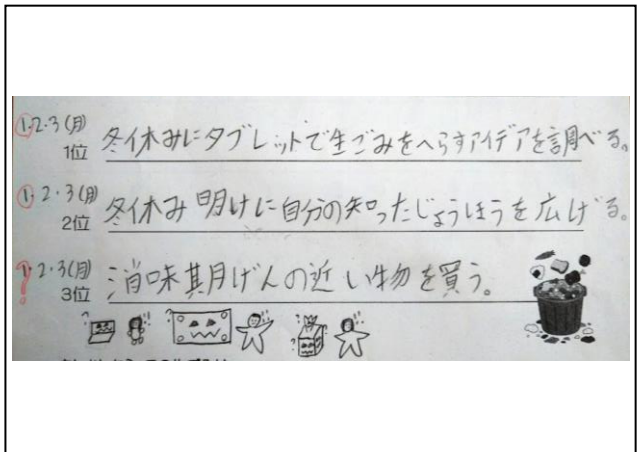 1・2・3(月)
1位 冬休みにタブレットで生ごみをへらすアイデアを調べる。
1・2・3(月)
2位 冬休み明けに自分の知ったじょうほうを広げる。
?
1・2・3(月)
3位 消味期げんの近い物を買う。